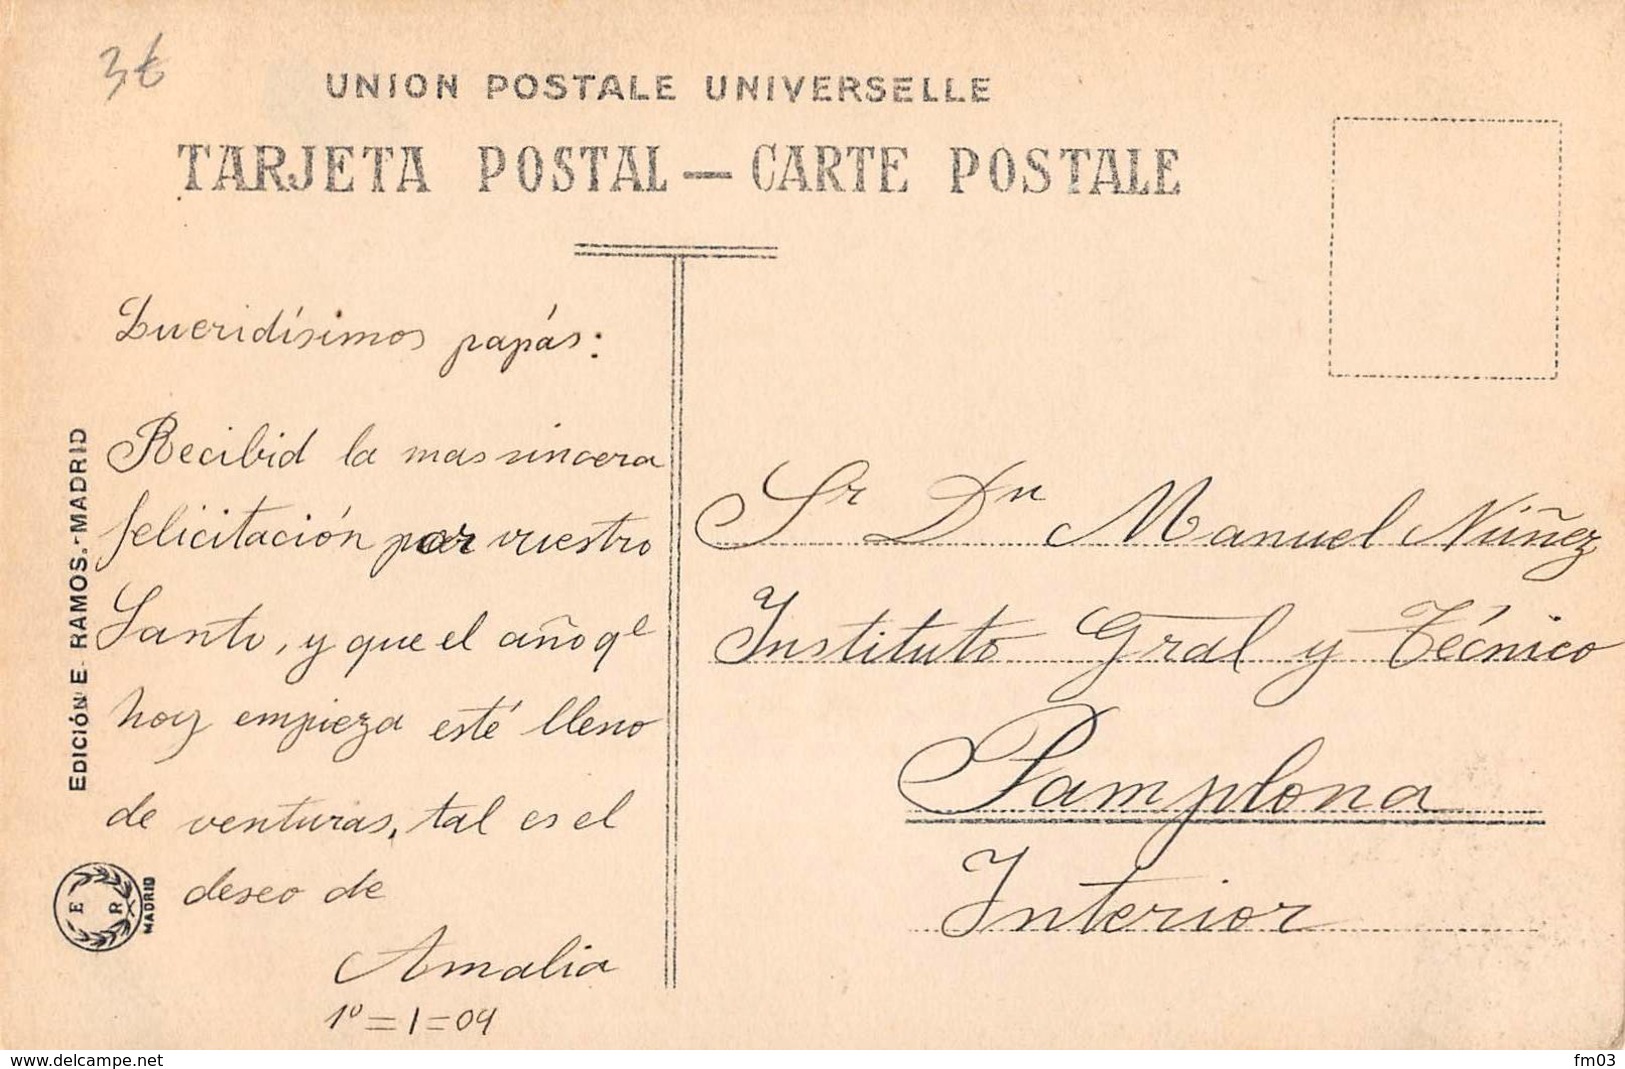 3€
UNION POSTALE UNIVERSELLE
TARJETA POSTAL — CARTE POSTALE
Queridísimos papás:
Recibid la mas sincera
felicitación por vuestro
Santo, y que el año qe
hoy empieza esté lleno
de venturas, tal es el
deseo de
Amalia
1º=1=09
EDICIÓN E. RAMOS.-MADRID
E R
MADRID
Sr Dn Manuel Núñez
Instituto Gral y Técnico
Pamplona
Interior
www.delcampe.net
fm03